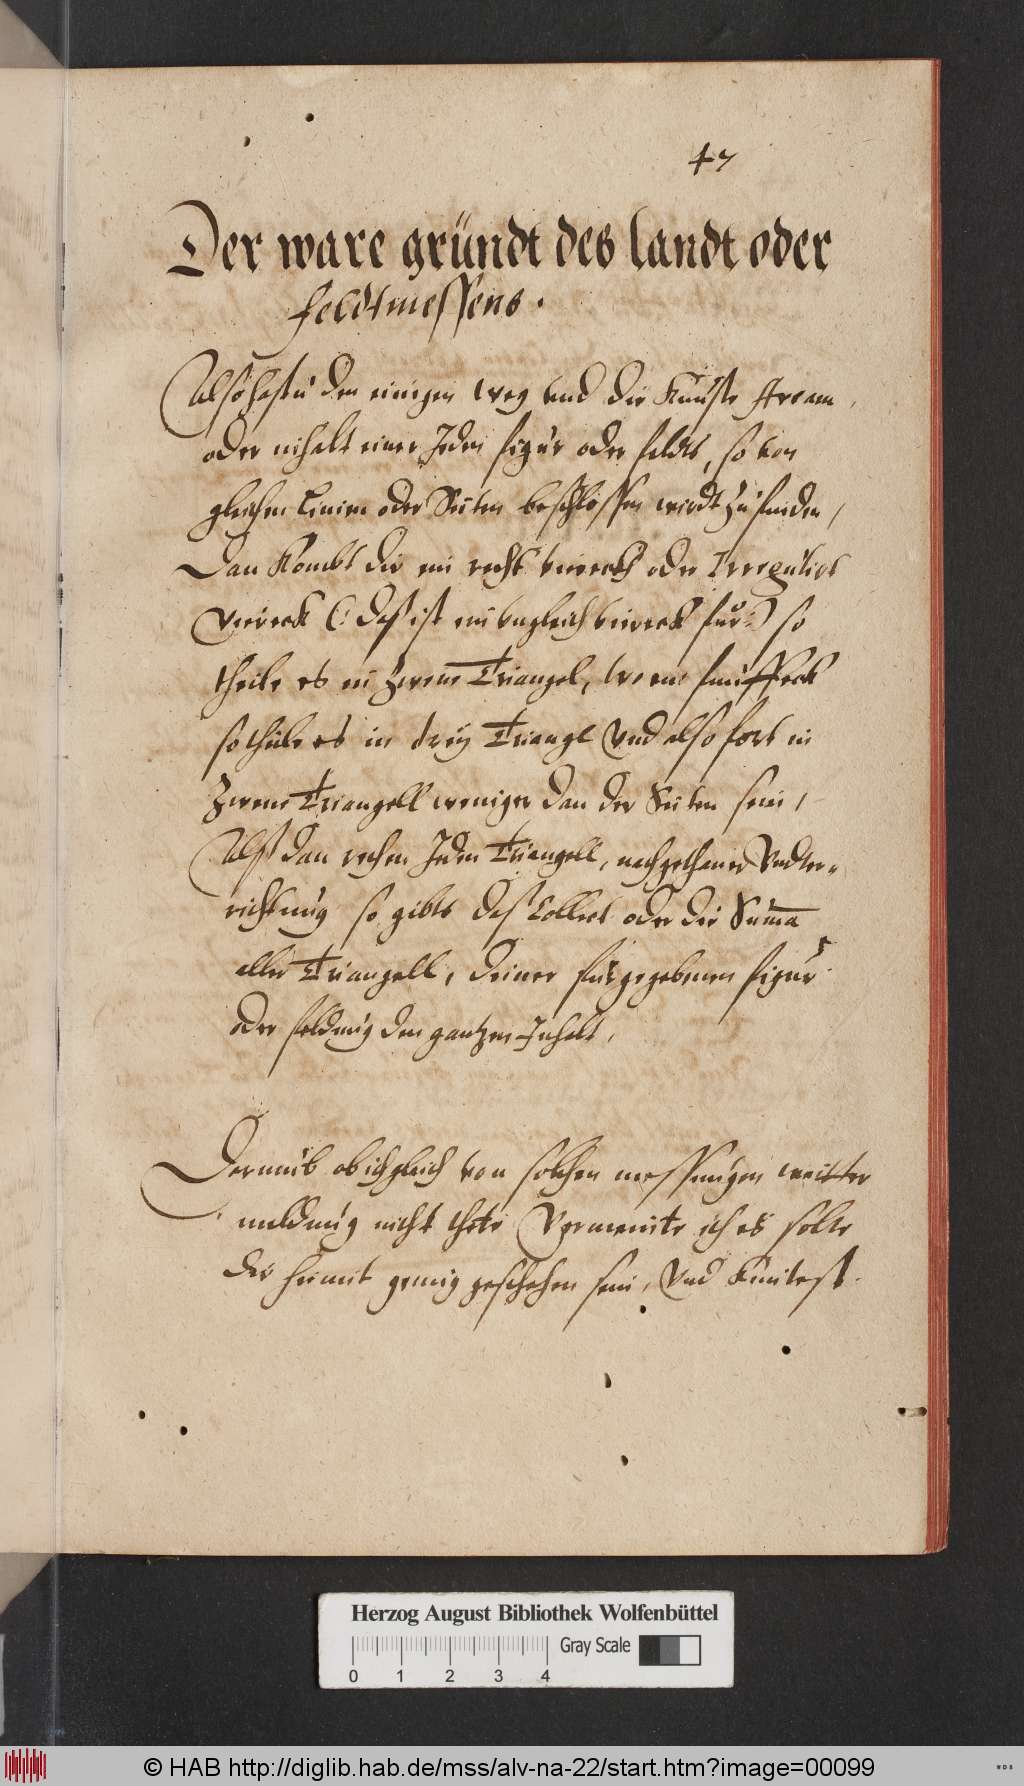 47
Der ware gründt des landt oder
feldtmessens.
Also hastu den einigen weg vnd die Künste Aream,
oder inhalt einer Jeden figur oder feldts, so von
gleichen Linien oder Seiten beschlossen wirdt zu finden,
Dan Kombt dir ein recht viereck oder Irregulirt
Viereck (: das ist ein vngleich viereck für :) so
theile es in zwene Triangel, wo ein funffeck
so theile es in dreÿ Triangl Vnd also fort in
zwene Triangell weniger dan der Seiten sein,
Alß dan rechen Jeden Triangell, nach gethaner Vndter-
richtung so gibts daß Collect oder die Suma
aller Triangell, deiner fürgegebenen figur
oder feldung den gantzen Inhalt,
Darumb ob ich gleich von solchen messungen weitter
meldung nicht thete Vermeinte ich es solte
dir hiemit genug geschehen sein, Vnd Köntest
Herzog August Bibliothek Wolfenbüttel
Gray Scale
0 1 2 3 4
© HAB http://diglib.hab.de/mss/alv-na-22/start.htm?image=00099